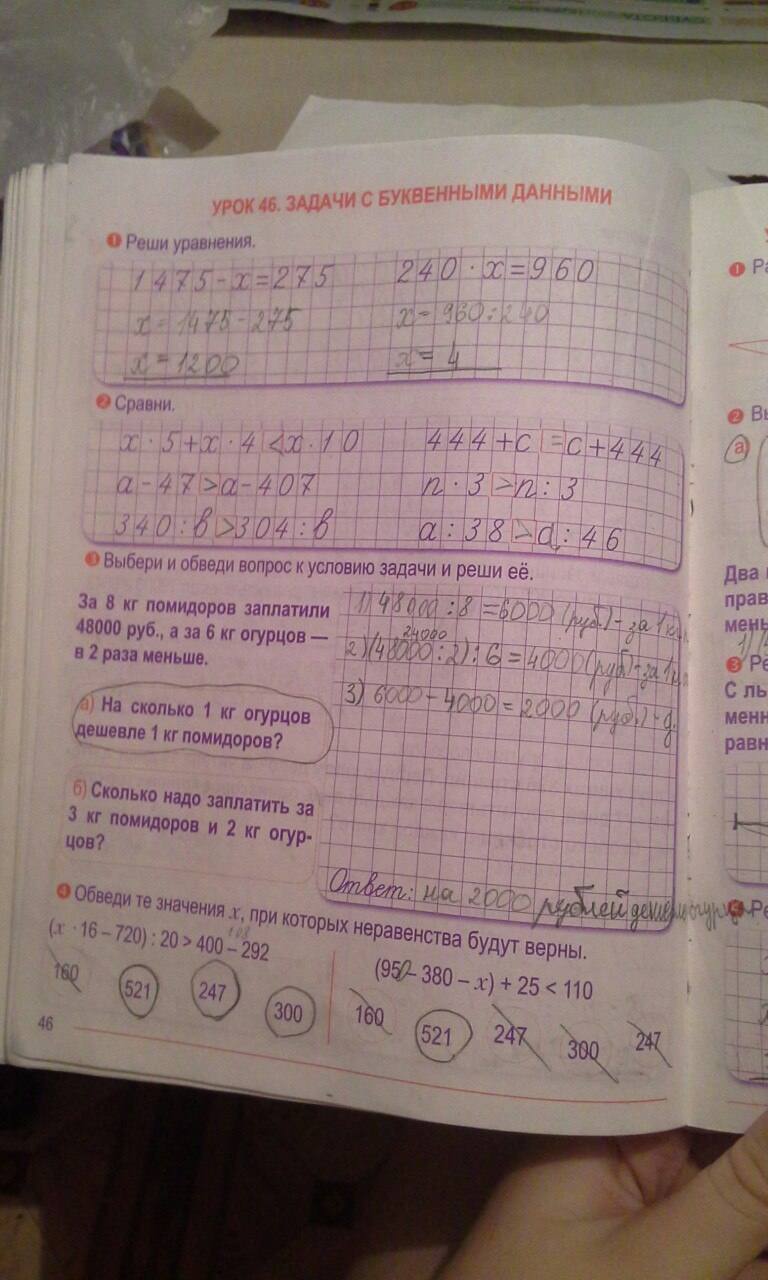 УРОК 46. ЗАДАЧИ С БУКВЕННЫМИ ДАННЫМИ
1 Реши уравнения.
1475-x=275
x=1475-275
x=1200
240·x=960
x=960:240
x=4
2 Сравни.
x·5+x·4<x·10
a-47>a-407
340:в>304:в
444+c=c+444
n·3>n:3
a:38>a:46
3 Выбери и обведи вопрос к условию задачи и реши её.
За 8 кг помидоров заплатили
48000 руб., а за 6 кг огурцов —
в 2 раза меньше.
а) На сколько 1 кг огурцов
дешевле 1 кг помидоров?
б) Сколько надо заплатить за
3 кг помидоров и 2 кг огур-
цов?
1) 48000:8=6000 (руб.)- за 1
24000
2) (48000:2):6=4000 (руб)-за 1
3) 6000-4000=2000 (руб.)-д.
Ответ: на 2000 рублей
4 Обведи те значения x, при которых неравенства будут верны.
108
(x · 16 – 720) : 20 > 400 – 292
160 521 247 300
(950 – 380 – x) + 25 < 110
160 521 247 300 247
46
1 Ра
2 Вы
а)
Два
прав
мень
1)
3 Ре
С ль
менн
равн
Ре